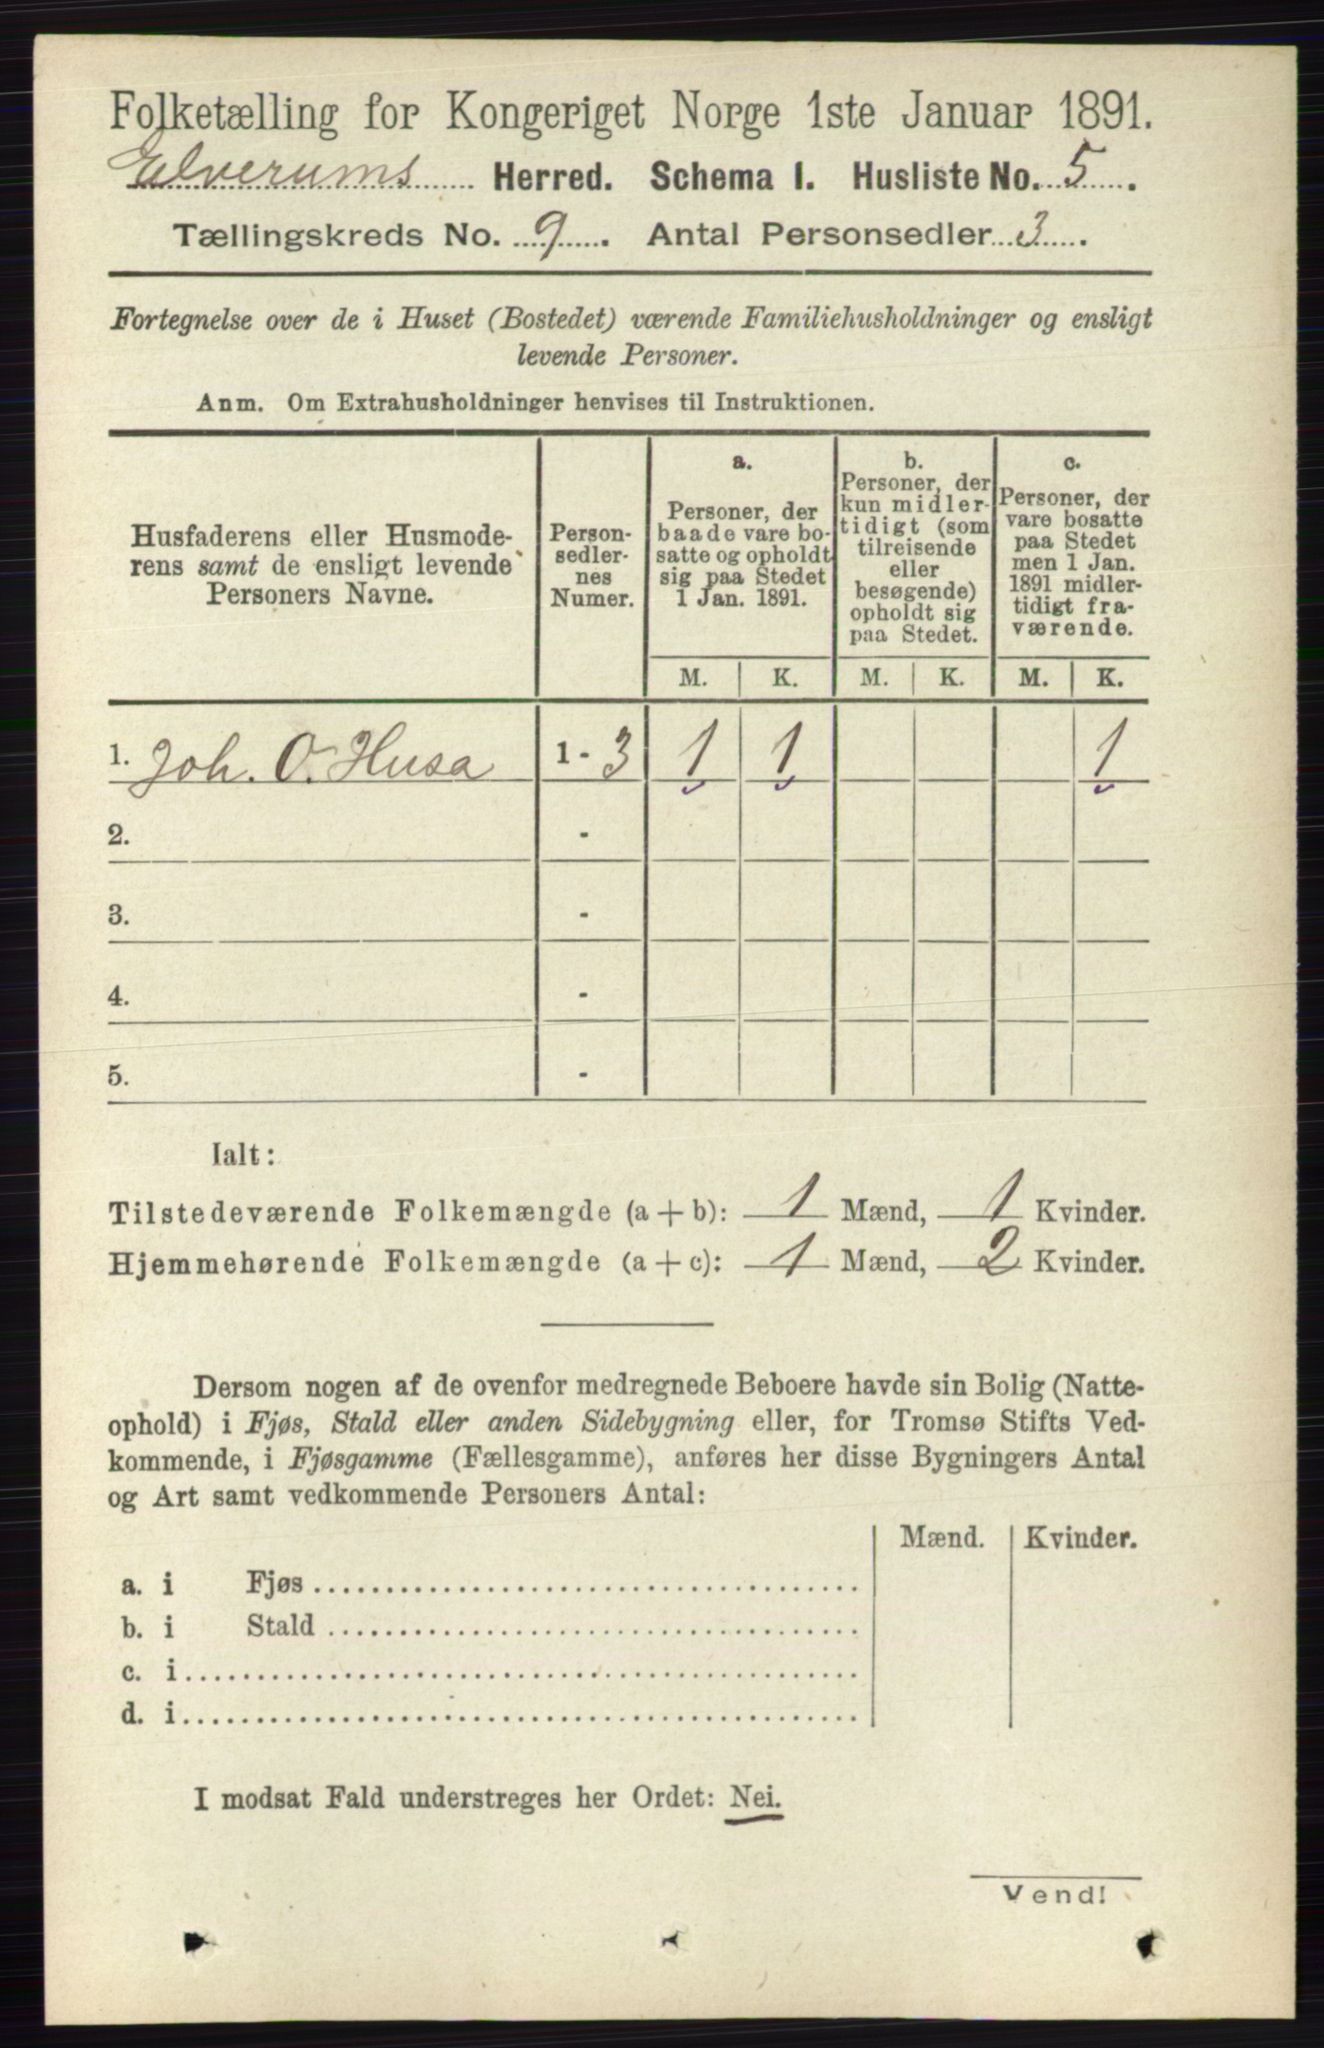 Folketælling for Kongeriget Norge 1ste Januar 1891.
Elverums Herred. Schema I. Husliste No. 5.
Tællingskreds No. 9. Antal Personsedler 3.
Fortegnelse over de i Huset (Bostedet) værende Familiehusholdninger og ensligt
levende Personer.
Anm. Om Extrahusholdninger henvises til Instruktionen.
Husfaderens eller Husmode-
rens samt de ensligt levende
Personers Navne.
Person-
sedler-
nes
Numer.
a.
Personer, der
baade vare bo-
satte og opholdt
sig paa Stedet
1 Jan. 1891.
b.
Personer, der
kun midler-
tidigt (som
tilreisende
eller
besøgende)
opholdt sig
paa Stedet.
c.
Personer, der
vare bosatte
paa Stedet
men 1 Jan.
1891 midler-
tidigt fra-
værende.
M. K. M. K. M. K.
1. Joh. O. Husa 1 - 3 1 1 1
2. -
3. -
4. -
5. -
Ialt:
Tilstedeværende Folkemængde (a + b): 1 Mænd, 1 Kvinder.
Hjemmehørende Folkemængde (a + c): 1 Mænd, 2 Kvinder.
Dersom nogen af de ovenfor medregnede Beboere havde sin Bolig (Natte-
ophold) i Fjøs, Stald eller anden Sidebygning eller, for Tromsø Stifts Ved-
kommende, i Fjøsgamme (Fællesgamme), anføres her disse Bygningers Antal
og Art samt vedkommende Personers Antal:
Mænd. Kvinder.
a. i Fjøs
b. i Stald
c. i
d. i
I modsat Fald understreges her Ordet: Nei.
Vend!